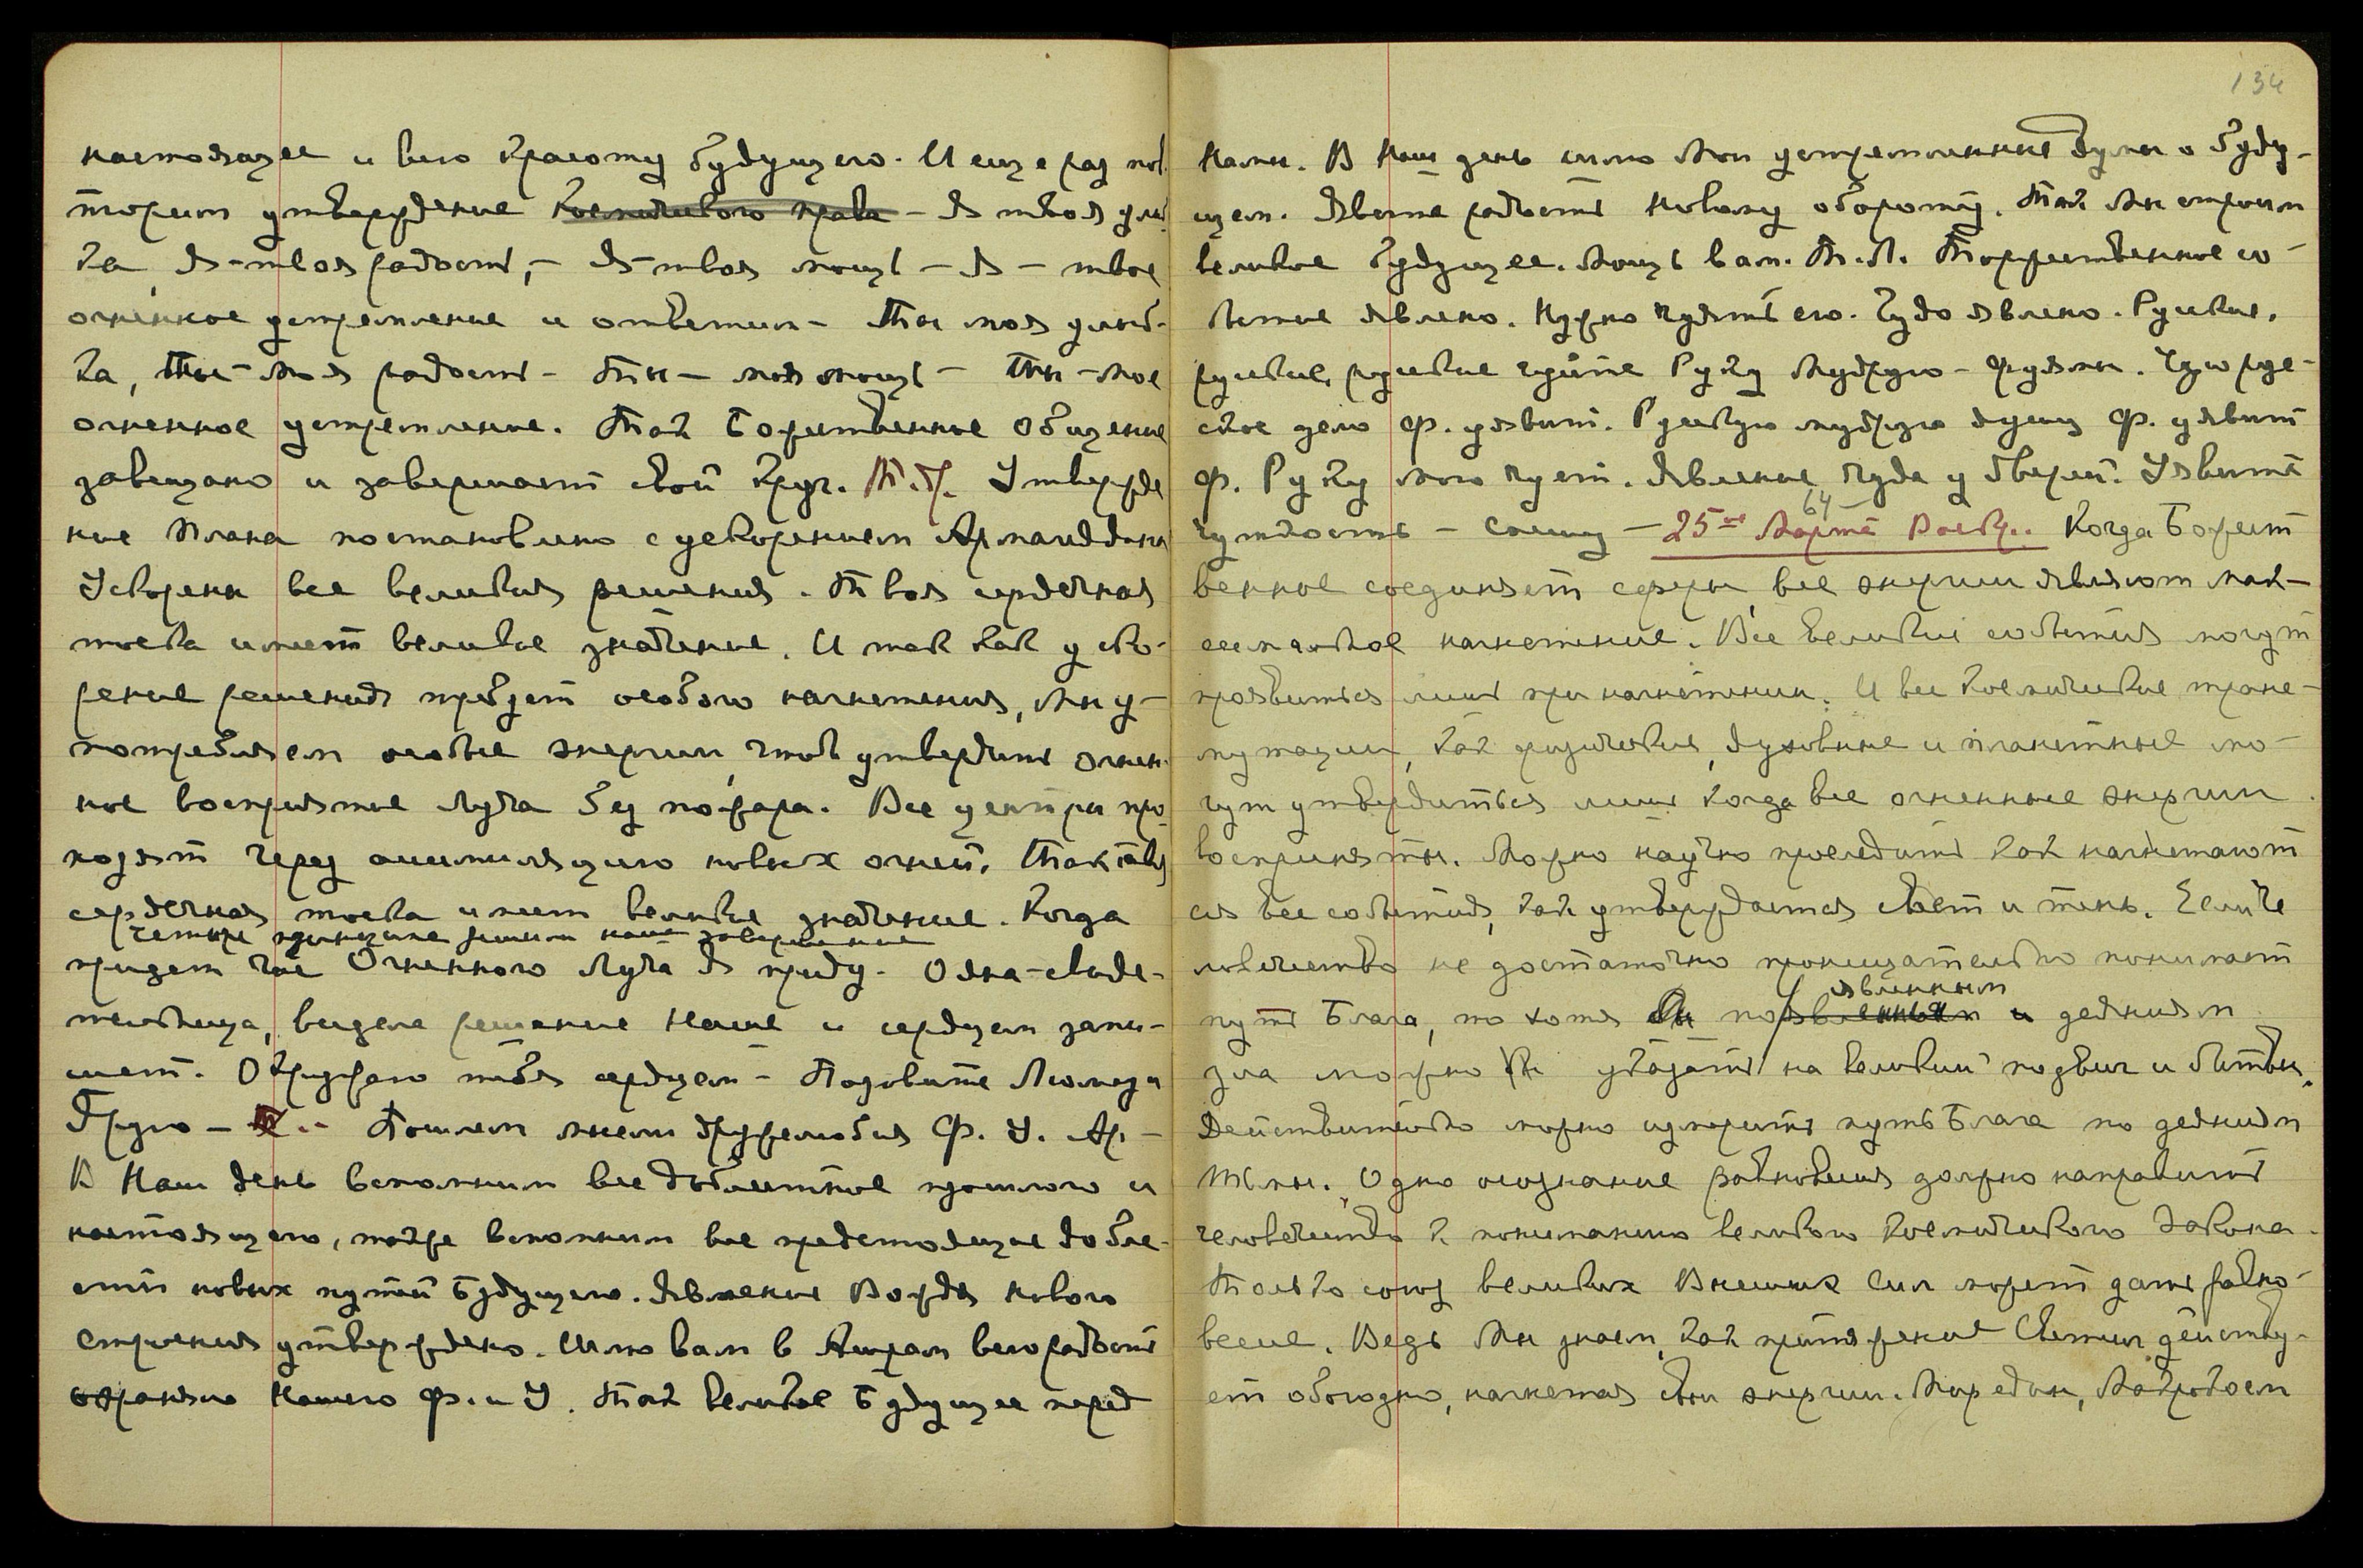 настоящее и всю красоту будущего. И еще раз пов-
торим утверждение Космического права – Я твоя улыб-
ка, Я – твоя радость, – Я – твоя мощь – Я – твое
огненное устремление и ответим – Ты моя улыб-
ка, Ты – моя радость – Ты – моя мощь – Ты – мое
огненное устремление. Так Божественное Общение
завещано и завершает свой круг. Утвержде
ние Плана постановлено с ускорением Армагеддона
Ускорены все великия решения. Твоя сердечная
тоска имеет великое значение. И так как уско-
рение решения требует особого нагнетения, Мы у-
потребляем особые энергии, чтоб утвердить огнен-
ное восприятие Луча без пожара. Все центры про
ходят через ассимиляцию новых огней. Так твоя
сердечная тоска имеет великое значение. Когда
четыре принципа решили наше завершение
придет час Огненного Луча Я приду. Одна – свиде-
тельница, видела решение Наше и сердцем запи-
шет. Окружаю тебя сердцем – Позовите Люмоу и
Другую – Пошлем знели дружелюбия Ф. У. Ар –
В Наш день вспомним все доблестное прошлого и
настоящего, также вспомним все предстоящие добле-
сти новых путей Будущего. Явление Вождя нового
строения утверждено. Шлю вам в Ашрам всю радость
охраняю Нашего Ф. и У. Так великое Будущее перед
134
Нами. В Наш день шлю Мои устремленные думы о буду-
щем. Явите радость новому обороту. Так Мы строим
великое будущее. Мощь вам. Торжественное со-
бытие явлено. Нужно чуять его. Чудо явлено. Русские,
русские, русские чуйте Руку Мудрую – друзьями.
ское дело Ф. уявит. Русскую мудрую душу Ф. уявит
Ф. Руку мою чует. Явление чуда у дверей. Уявите
64
чуткость – сошлу – 25-ое Марта Воскр. Когда Божест
венное соединяет сферы, все энергии являют мак-
симальное нагнетение. Все великие события могут
проявиться лишь при нагнетении. И все космические транс-
мутации, как физические, духовные и планетные мо-
гут утвердиться лишь когда все огненные энергии
восприняты. Можно научно проследить как нагнетают
ся все события, как утверждается свет и тень. Если че
ловечество не достаточно проницательно понимает
явленным
путь Блага, то хотя бы по явленным и деяниям
зла можно бы указать на великий подвиг и битвы.
Действительно можно измерить путь Блага по деяниям
тьмы. Одно осознание равновесия должно направить
человечество к пониманию великого космического Закона.
Только союз великих Высших Сил может дать равно-
весие. Ведь Мы знаем, как притяжение Светил действу-
ет обоюдно, нагнетая свои энергии. Мир един, Макрокосм